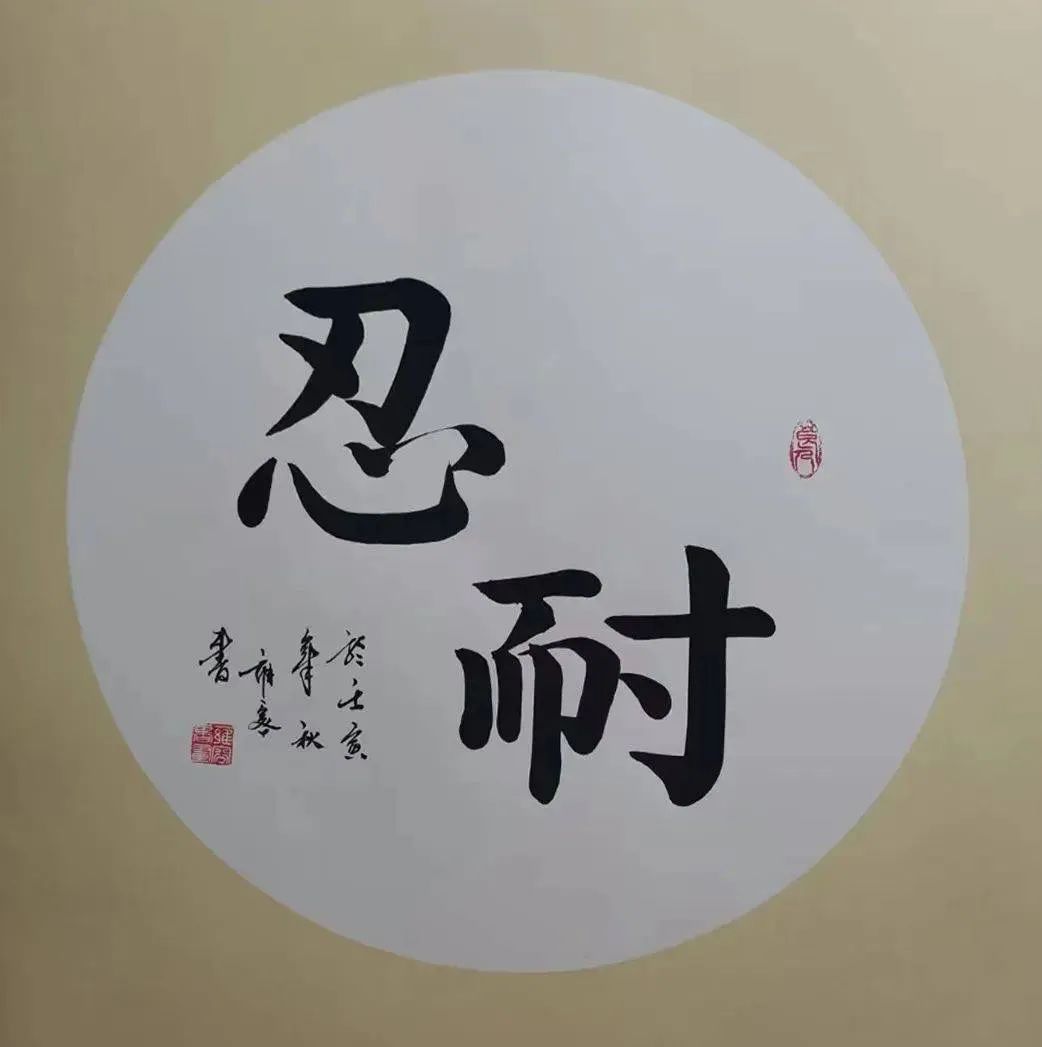 忍耐
於壬寅
年秋
雍容
書